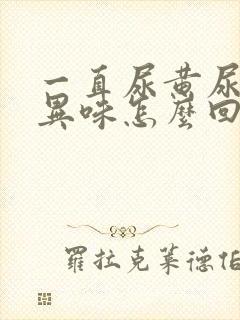 一直尿黄尿
異味怎麼回
羅拉克萊德伯